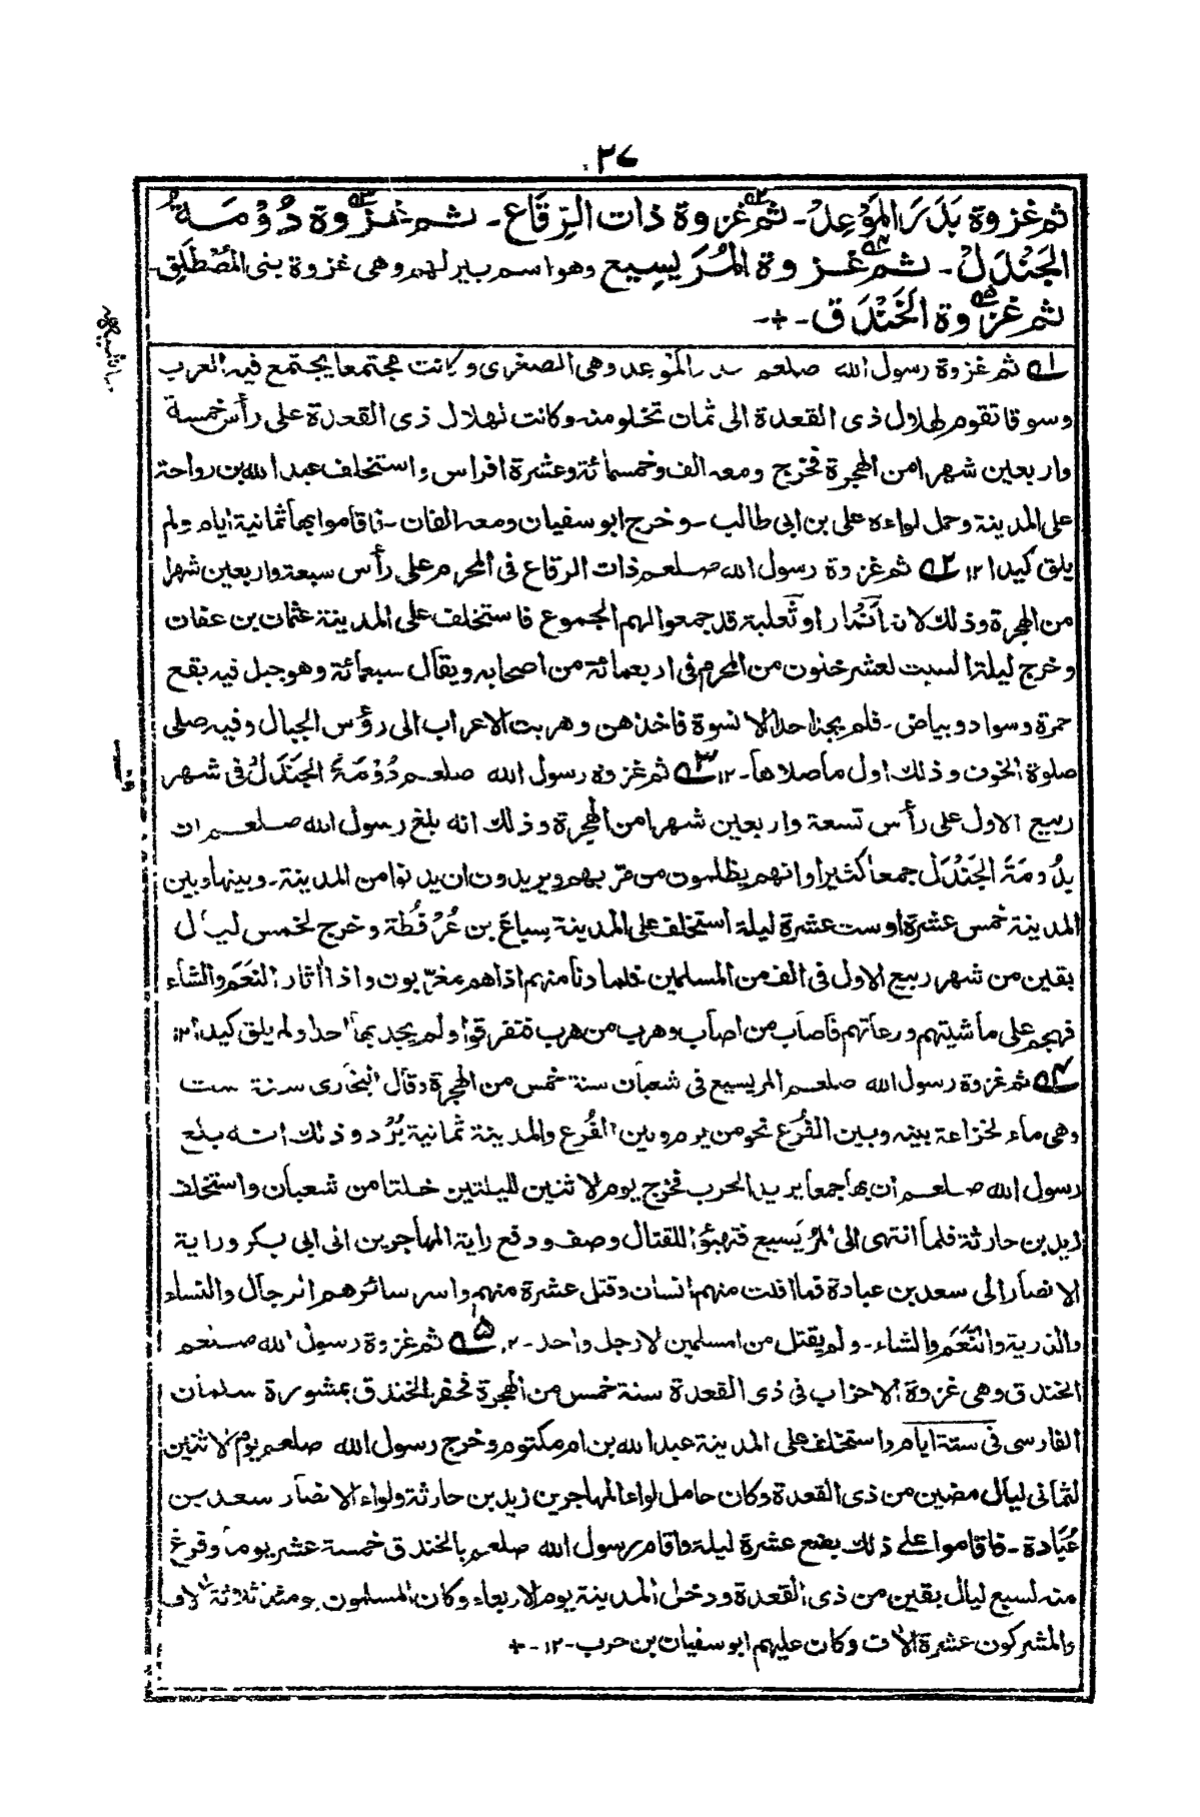 ٣٧
ثم غزوة بَدَرَ المَوْعِدْ - ثم غزوة ذات الرِّقَاع - ثم غزوة دُوْمَةُ
الجَنْدَلْ - ثم غزوة المُرَيسِيع وهو اسم بير لهم وهى غزوة بنى المُصْطَلِق -
ثم غزوة الخَنْدَق -+-
١ ثم غزوة رسول الله صلعم بدر المَوْعد وهى الصغرى وكانت مجتمعا يجتمع فيه العرب
وسوقا تقوم لهلال ذى القعدة الى ثمان تخلو منه وكانت لهلال ذى القعدة على رأس خمسة
واربعين شهرا من الهجرة فخرج ومعه الف وخمسمائة وعشرة افراس واستخلف عبد الله بن رواحة
على المدينة وحمل لواءه على بن ابى طالب - وخرج ابو سفيان ومعه الفان - فاقاموا بها ثمانية ايام ولم
يلق كيدا ١٢ ٢ ثم غزوة رسول الله صلعم ذات الرقاع فى المحرم على رأس سبعة واربعين شهرا
من الهجرة وذلك لان انمار او ثعلبة قد جمعوا لهم الجموع فاستخلف على المدينة عثمان بن عفان
وخرج ليلة السبت لعشر خلون من المحرم فى اربعمائة من اصحابه ويقال سبعمائة وهو جبل فيه بقع
حمرة وسواد وبياض - فلم يجد احدا الا نسوة فاخذهن وهربت الاعراب الى رؤس الجبال وفيه صلى
صلوة الخوف وذلك اول ما صلاها - ١٢ ٣ ثم غزوة رسول الله صلعم دُوْمَةُ الجَنْدَلُ فى شهر
ربيع الاول على رأس تسعة واربعين شهرا من الهجرة وذلك انه بلغ رسول الله صلعم ان
بدُومَةَ الجَنْدَل جمعا كثيرا وانهم يظلمون من مرّ بهم ويريدون ان يدنوا من المدينة - وبينها وبين
المدينة خمس عشرة او ست عشرة ليلة استخلف على المدينة سِباعَ بن عُرْفُطة وخرج لخمس ليال
بقين من شهر ربيع الاول فى الف من المسلمين فلما دنا منهم اذاهم مغرّبون واذا اثار النَعَم والشاء
فهجم على ماشيتهم ورعاتهم فاصاب من اصاب وهرب من هرب فتفرقوا ولم يجد بها احدا ولم يلق كيدا ١٢
٤ ثم غزوة رسول الله صلعم المريسيع فى شعبان سنة خمس من الهجرة وقال البخارى سنة ست
وهى ماء لخزاعة بينه وبين الفُرْع نحو من يوم وبين الفُرع والمدينة ثمانية بُرُد وذلك انه بلغ
رسول الله صلعم ان بها جمعا يريد الحرب فخرج يوم الاثنين لليلتين خلتا من شعبان واستخلف
زيد بن حارثة فلما انتهى الى المُرَيسيع فتهيؤا للقتال وصف ودفع راية المهاجرين الى ابى بكر وراية
الانصار الى سعد بن عبادة فما افلت منهم انسان وقتل عشرة منهم واسر سائرهم الرجال والنساء
والذرية والنَّعَم والشاء - ولم يقتل من المسلمين الا رجل واحد - ١٢ ٥ ثم غزوة رسول الله صلعم
الخندق وهى غزوة الاحزاب فى ذى القعدة سنة خمس من الهجرة فحفر الخندق بمشورة سلمان
الفارسى فى ستة ايام واستخلف على المدينة عبد الله بن ام مكتوم وخرج رسول الله صلعم يوم الاثنين
لثمانى ليال مضين من ذى القعدة وكان حامل لواء المهاجرين زيد بن حارثة ولواء الانصار سعد بن
عُبَادة - فاقاموا على ذلك بضع عشرة ليلة واقام رسول الله صلعم بالخندق خمسة عشر يوما وفرغ
منه لسبع ليال بقين من ذى القعدة ودخل المدينة يوم الاربعاء وكان المسلمون يومئذ ثلاثة الاف
والمشركون عشرة الاف وكان عليهم ابو سفيان بن حرب - ١٢ -+